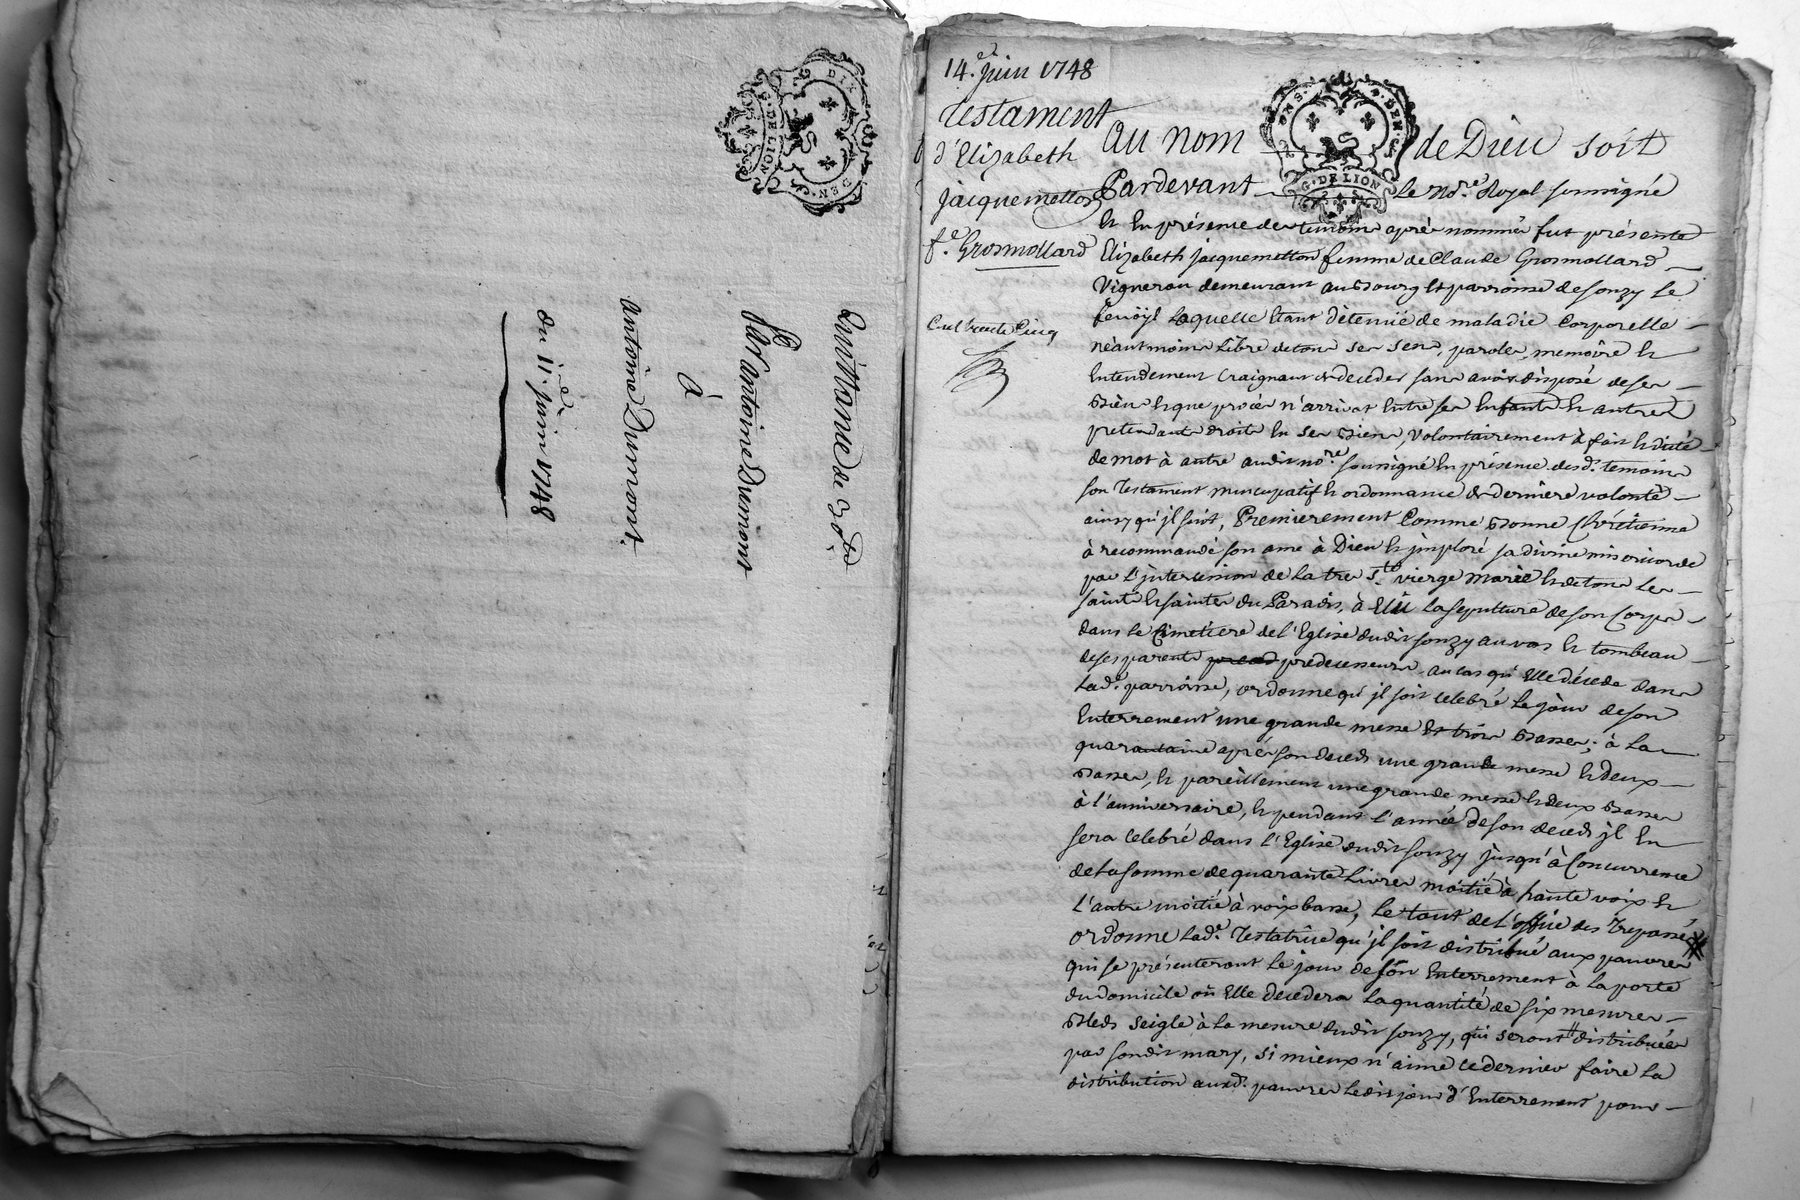 Quittance de 30 lt
Par antoine Dumont
à
Antoine Dumont.
du 11e. Juin 1748
DIX DEN.
G. DE LION
14e. Juin 1748
Testament
d'Elizabeth
jacquemetton
fe. Grosmollard
Cent trente Cinq
DEN.
G. DE LION
Au nom de Dieu soit
Pardevant le Nore. Royal soussigné
et En présence des temoins aprés nommés fut présente
Elizabeth jacquemetton femme de Claude Grosmollard
Vigneron demeurant au Bourg et parroisse de Souzy Le
laquelle Etant détenüe de maladie Corporelle
néantmoins Libre de tous ses sens, parole, memoire et
Entendement Craignant de deceder sans avoir disposé de ses
Biens et que procés n'arrivat Entre ses Enfants et autres
pretendants droits En ses Biens, Volontairement à fait et dicté
de mot à autre audit nore. soussigné En présence desd. temoins
son Testament nuncupatif et ordonnance de derniere volonté
ainsy qu'jl suit, Premierement Comme Bonne Chrétienne
à recommandé son ame à Dieu et jmploré sa divine misericorde
par L'jntercession de La tres Ste. vierge marie et de tous Les
saints et saintes du Paradis, à Elu La sepulture de son Corps
dans Le Cimetiere de L'Eglise dudit Souzy au vas et tombeau
de ses parents predecesseurs au cas qu'Elle décede dans
Lade. parroisse, ordonne qu'jl soit celebré Le jour de son
Enterrement une grande messe Et trois Basses; à La
quarantaine aprés son decés une grande messe et deux
Basses, et pareillement une grande messe et deux Basses
à L'anniversaire, et pendant L'année de son decés jl En
sera celebré dans L'Eglise dudit Souzy jusqu'à Concurrence
de La somme de quarante Livres moitié à haute voix et
L'autre moitié à voix basse, Le tout de L'office des Trepassés
ordonne Lade. Testatrice qu'jl soit distribué aux pauvres
qui se présenteront Le jour de son Enterrement à La porte
du domicile où Elle decedera La quantité de six mesures
Bleds seigle à La mesure dudit Souzy, qui seront distribuées
par sondit mary, si mieux n'aime ce dernier faire La
distribution auxd. pauvres Ledit jour d'Enterrement pour